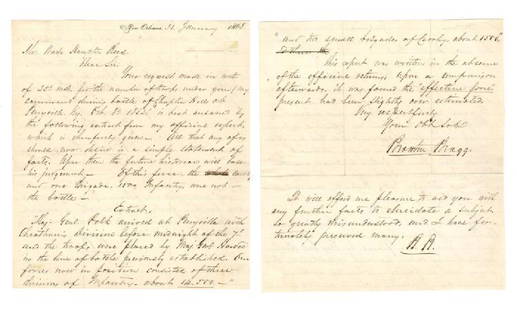 New Orleans 31. January 1868.
My Dear Sir
Your request made in note
of 25th inst for the number of troops under
command during battle of Chaplin Hills at
Perryville Ky. Oct. 8. 1862 is best answered by
the following extract from my official report,
which is cheerfully given. All that any of us
should now desire is a simple statement of
facts. Upon them the future historian will base
his judgment. Of this force the
and one brigade, Infantry were not
the battle.
Extract.
Maj. Genl Polk arrived at Perryville with
Cheatham's division before midnight of the 7th
and the troops were placed by Maj. Genl Hardee
in the line of battle previously established. Our
forces now in position consisted of three
divisions of Infantry about 14,500
"and two small brigades of Cavalry about 1500"
This report was written in the absence
of the official returns. Upon a comparison
afterwards it was found the effective force
present had been slightly over estimated
Very respectfully
Your Obt Svt
Braxton Bragg.
It will afford me pleasure to aid you with
any further facts to elucidate a subject
so greatly misunderstood, and I have
preserved many.
B. B.